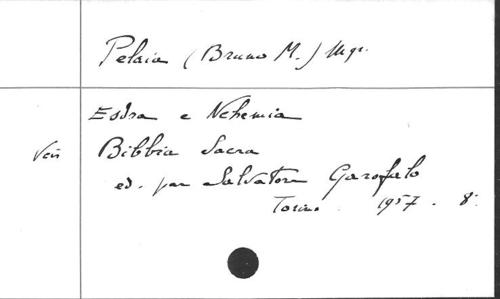 Pelaia (Bruno M.) Mgr.
Esdra e Nehemia
Voir Bibbia Sacra
ed. par Salvatore Garofalo
Torino. 1957. 8°